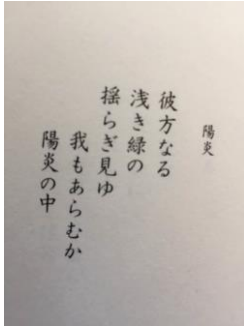 陽炎
彼方なる
浅き緑の
揺らぎ見ゆ
我もあらむか
陽炎の中